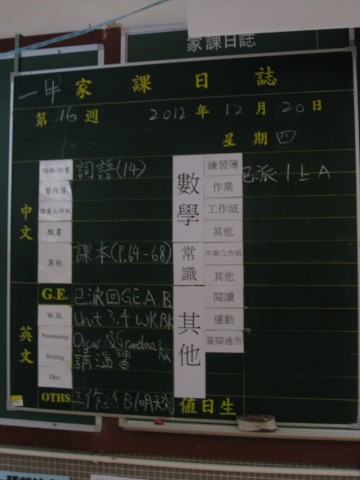 家課日誌
一牛 家課日誌
第16週 2012年12月20日
星期四
中文
詞語(14)
寫作簿
默書
其他 課本(P.64-68)
英文
G.E. 已派回GE A B
W.B. Unit 3,4 WK BK
Penmanship Oscar & Grandma BK
Writing 請溫習
Dict.
OTHS 工作紙 B(明交)
數學
練習簿 已派 1上A
作業
工作紙
其他
常識
作業/工作紙
其他
其他
閱讀
運動
簽閱通告
值日生